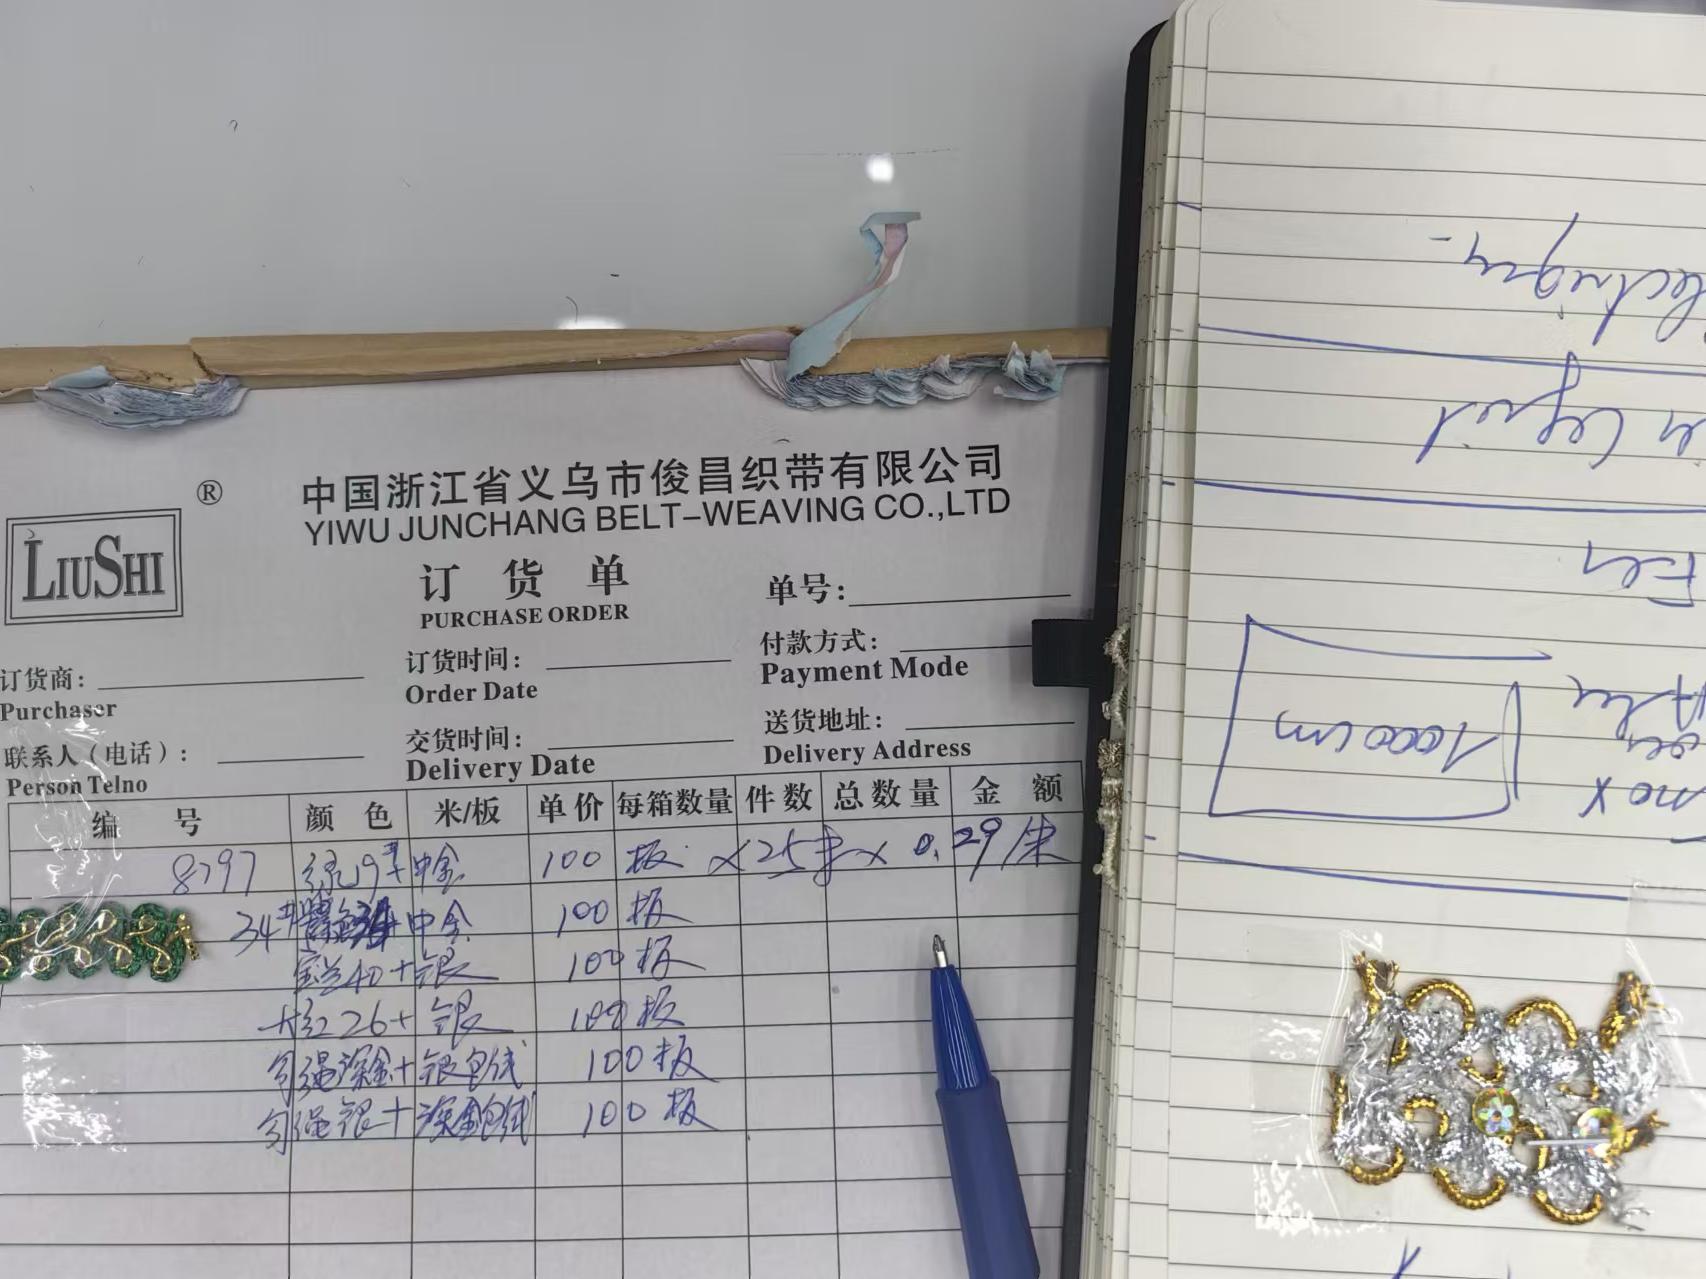 ®
LIUSHI
中国浙江省义乌市俊昌织带有限公司
YIWU JUNCHANG BELT-WEAVING CO.,LTD
订 货 单
PURCHASE ORDER
单号:
订货商:
Purchaser
订货时间:
Order Date
付款方式:
Payment Mode
联系人(电话):
Person Telno
交货时间:
Delivery Date
送货地址:
Delivery Address
编 号 颜 色 米/板 单价 每箱数量 件数 总数量 金 额
8797 绿19#+中金 100 板 ×25米× 0.29/米
34# +中金 100 板
宝兰40+银 100 板
大红26+银 100 板
深金+银包线 100 板
银+深金包线 100 板
1000 cm